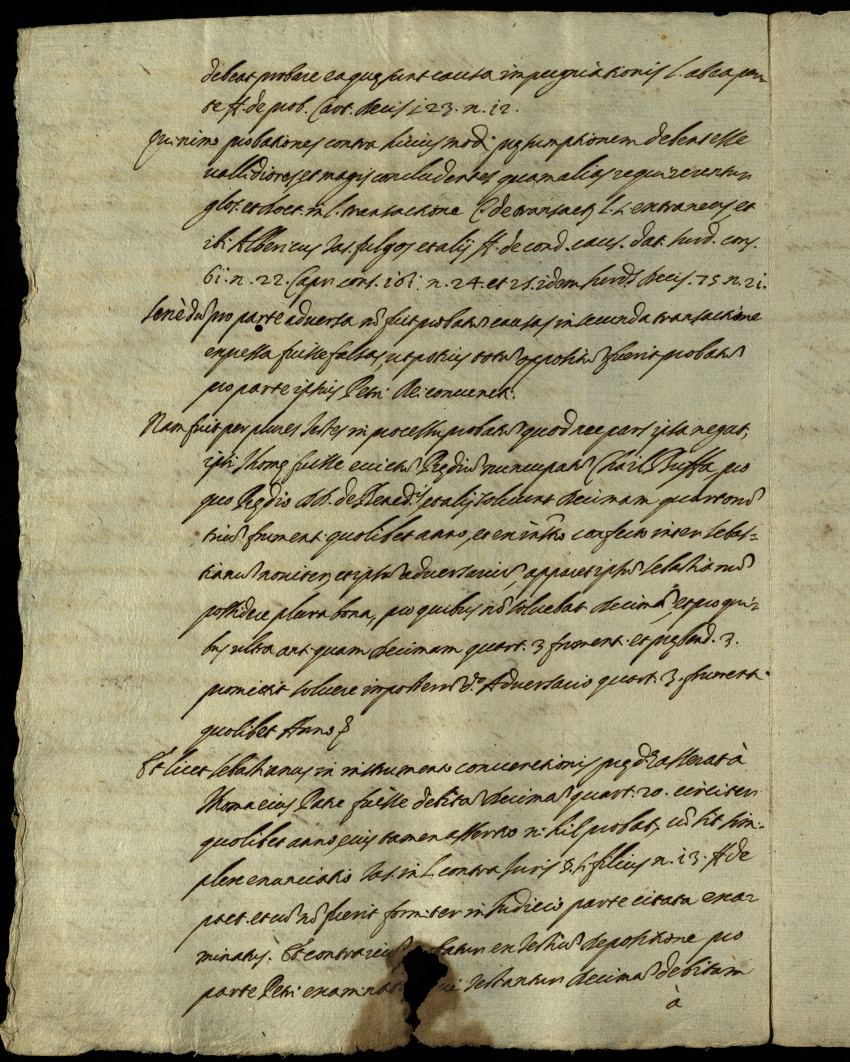 debeat probare ea quę sunt causa impugnationis l. ab ea par
te ff. de prob. Cavt. decis. 123. n. 12.
Qui nimo probationes contra huius modi pręsumptionem debent esse
vallidiores et magis concludentes quam alias requirerentur
glos. et doct. in l. transactione C. de transact. l. 1. et
ibi Albericus Ias. fulgos et alij ff. de cond. caus. dat. surd. cons.
61. n. 22. Capr. cons. 161. n. 24. et 25. idem surd. decis. 75 n. 21.
sed pro parte adversa nō fuit probatū causas in secunda transactione
expressa fuisse falsas, ut potius totū oppositū fuerit probatū
pro parte ipsius Petri Re: conventi.
Nam fuit per plures testes in processu probatū quod nec pars ipsa negat,
ipsi Thomę fuisse evictū Pędiū nuncupatū Buffa, pro
quo Pędio DD. de Bened.is et alij solvunt decimam quartonū
triū frument. quolibet anno, et ex instro confecto inter sebas-
tianū noviter, et ipsū adversariū, apparet ipsū sebastianū
possidere plura bona, pro quibus nō solvebat decimā, et pro qui-
bus ultra ant. quam decimam quart. 3 frument. et pręben. 3.
promisit solvere in posterū d.o Adversario quart. 3. frument.
quolibet Anno
Et licet sebastianus in instrumento conventionis pręd. asserat à
Thoma eius Patre fuisse debitā decimā quart. 20. circiter
quolibet anno, eius tamen assertio nihil probat, cū sit sim-
plex enunciatio Ias. in l. contra Iuris §. si filius n. 13. ff. de
pact. et cū nō fuerit form.ter in Iudicio parte citata exa-
minatus. Et contrariū probatur ex testiū depositione pro
parte Petri qui testantur decimā debitam
à